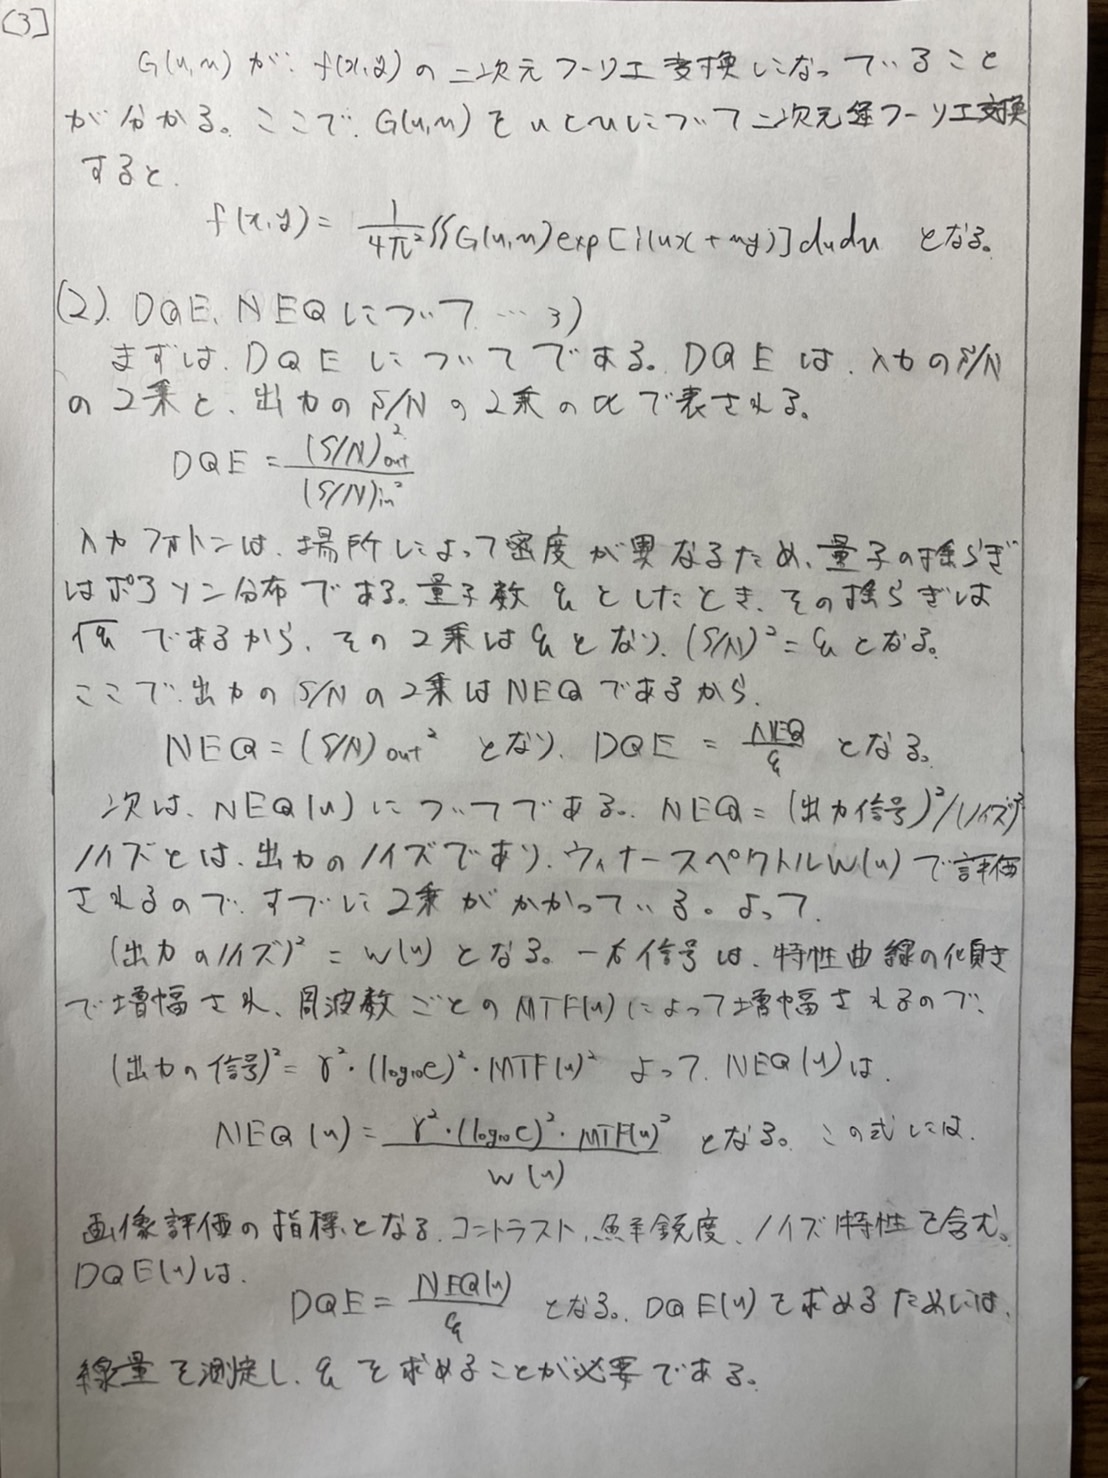 [3]
G(u,v)が、f(x,y)の二次元フーリエ変換になっていること
が分かる。ここで、G(u,v)をuとvについて二次元逆フーリエ変換
すると、
f(x,y)= 1/4π² ∬G(u,v)exp[i(ux+vy)]dudv となる。
(2). DQE、NEQについて…3)
まずは、DQEについてである。DQEは、入力のS/N
の2乗と、出力のS/Nの2乗の比で表される。
DQE = (S/N)out² / (S/N)in²
入力フォトンは、場所によって密度が異なるため、量子の揺らぎ
はポアソン分布である。量子数qとしたとき、その揺らぎは
√q であるから、その2乗はqとなり、(S/N)²=qとなる。
ここで、出力のS/Nの2乗はNEQであるから、
NEQ=(S/N)out² となり、DQE = NEQ/q となる。
次は、NEQ(u)についてである。NEQ=(出力信号)²/(ノイズ)²
ノイズとは、出力のノイズであり、ウィナースペクトルW(u)で評価
されるので、すでに2乗がかかっている。よって、
(出力のノイズ)² = W(u) となる。一方信号は、特性曲線の傾き
で増幅され、周波数ごとのMTF(u)によって増幅されるので、
(出力の信号)²= γ²・(log10e)²・MTF(u)² よって、NEQ(u)は、
NEQ(u)= γ²・(log10e)²・MTF(u)² / W(u) となる。この式には、
画像評価の指標となる、コントラスト、鮮鋭度、ノイズ特性を含む。
DQE(u)は、
DQE= NEQ(u)/q となる。DQE(u)を求めるためには、
線量を測定し、qを求めることが必要である。